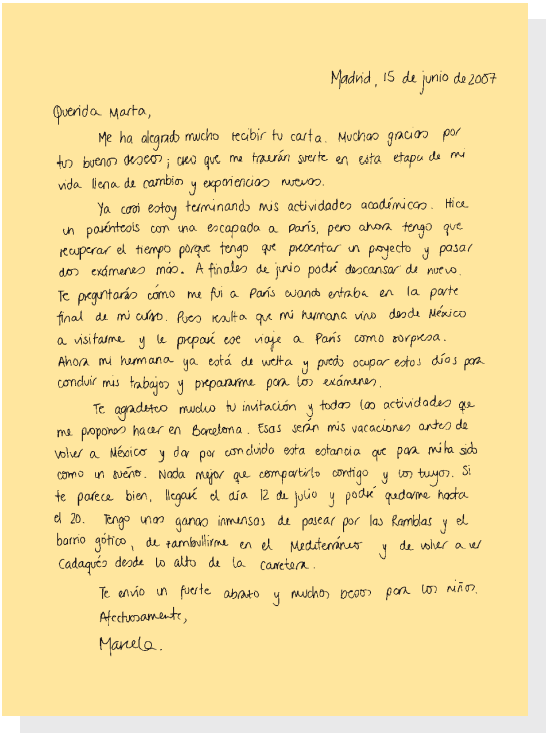 Madrid, 15 de junio de 2007
Querida Marta,
Me ha alegrado mucho recibir tu carta. Muchas gracias por
tus buenos deseos; creo que me traerán suerte en esta etapa de mi
vida llena de cambios y experiencias nuevas.
Ya casi estoy terminando mis actividades académicas. Hice
un paréntesis con una escapada a París, pero ahora tengo que
recuperar el tiempo porque tengo que presentar un proyecto y pasar
dos exámenes más. A finales de junio podré descansar de nuevo.
Te preguntarás cómo me fui a París cuando entraba en la parte
final de mi curso. Pues resulta que mi hermana vino desde México
a visitarme y le preparé ese viaje a París como sorpresa.
Ahora mi hermana ya está de vuelta y puedo ocupar estos días para
concluir mis trabajos y prepararme para los exámenes.
Te agradezco mucho tu invitación y todas las actividades que
me propones hacer en Barcelona. Esas serán mis vacaciones antes de
volver a México y dar por concluida esta estancia que para mí ha sido
como un sueño. Nada mejor que compartirlo contigo y los tuyos. Si
te parece bien, llegaré el día 12 de julio y podré quedarme hasta
el 20. Tengo unas ganas inmensas de pasear por las Ramblas y el
barrio gótico, de zambullirme en el Mediterráneo y de volver a ver
Cadaqués desde lo alto de la carretera.
Te envío un fuerte abrazo y muchos besos para los niños.
Afectuosamente,
Marcela.